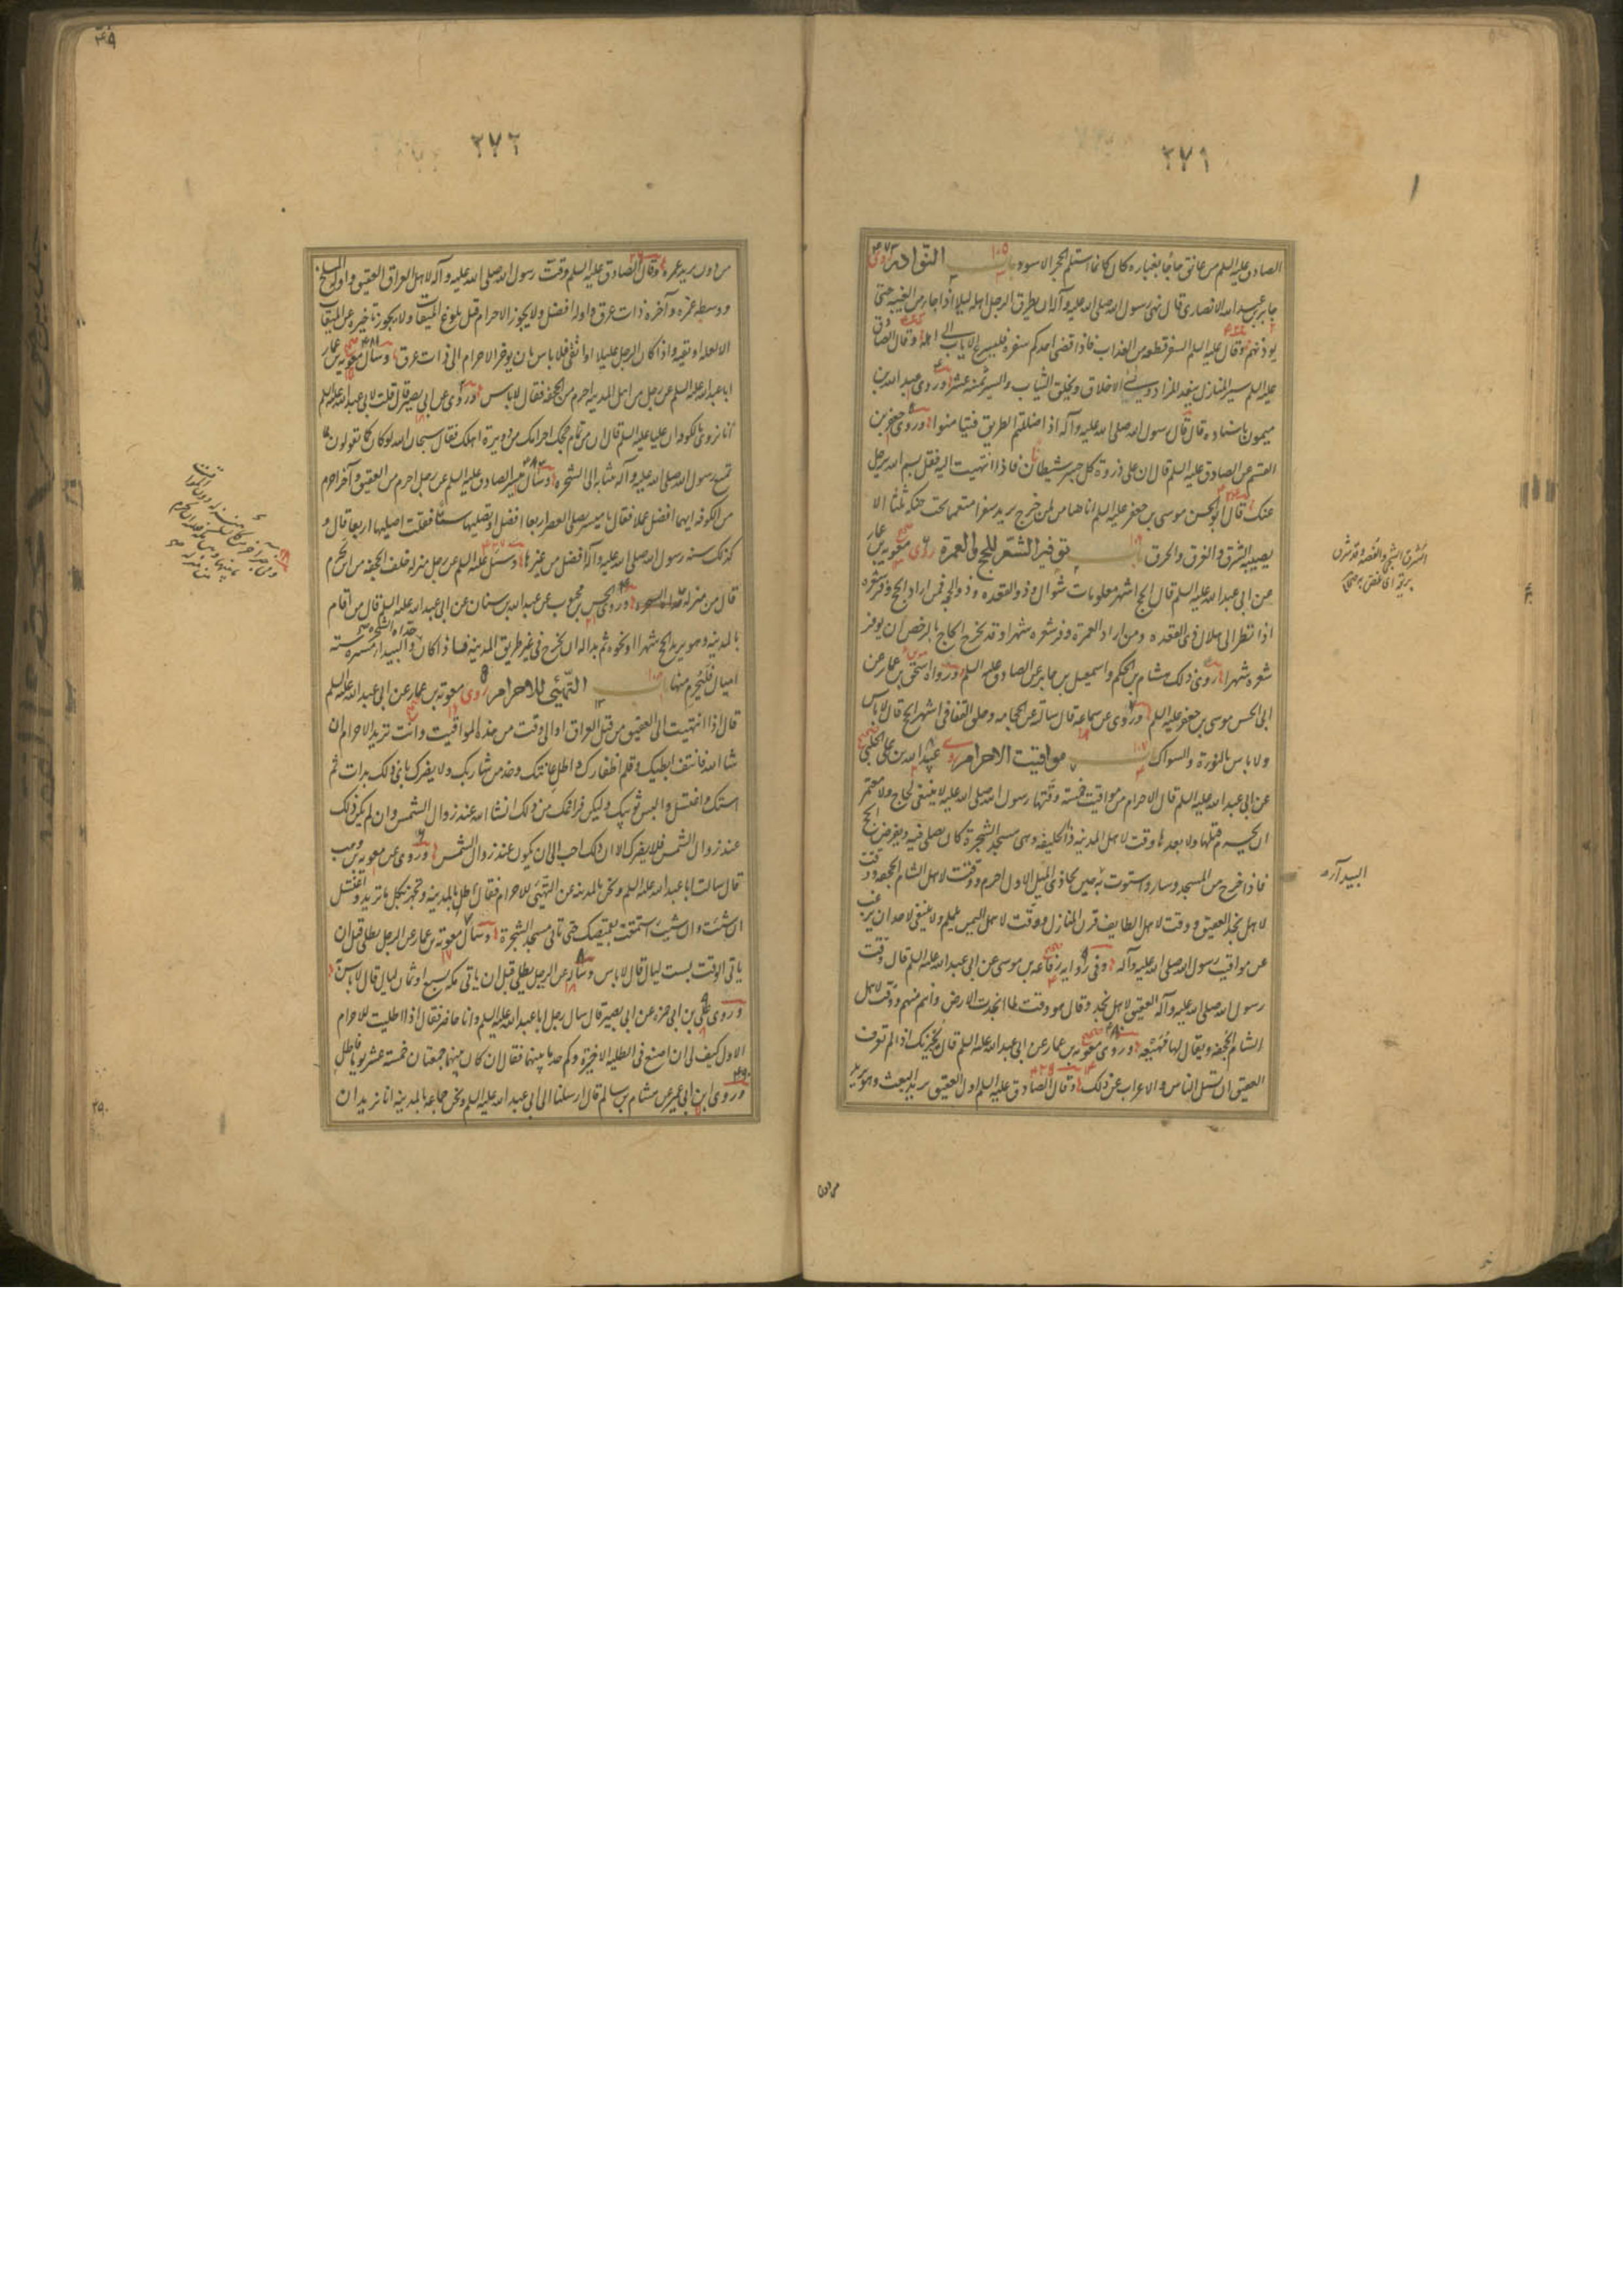 ٢٧١
الصادق عليه السلم من عانق حاجا بغباره كان كانما استلم الحجر الاسود باب النوادر روى
جابر بن عبد الله الانصارى قال نهى رسول الله صلى الله عليه وآله ان يطرق الرجل اهله ليلا اذا جاء من الغيبة حتى
يوذنهم وقال عليه السلم السفر قطعة من العذاب فاذا قضى احدكم سفره فليسرع الاياب الى اهله وقال الصادق
عليه السلم سير المنازل ينفد الزاد ويسئ الاخلاق ويخلق الثياب والسير ثمنية عشر وروى عبد الله بن
ميمون باسناده قال قال رسول الله صلى الله عليه وآله اذا ضللتم الطريق فتيامنوا وروى جعفر بن
القسم عن الصادق عليه السلم قال ان على ذروة كل جسر شيطان فاذا انتهيت اليه فقل بسم الله يرحل
عنك قال ابو الحسن موسى بن جعفر عليه السلم انا ضامن لمن خرج يريد سفرا متعمما تحت حنكه ثلثا الا
يصيبه الشرق والغرق والحرق باب توفير الشعر للحج والعمرة روى معوية بن عمار
عن ابى عبد الله عليه السلم قال الحج اشهر معلومات شوال وذو القعده وذو الحجه فمن اراد الحج وفر شعره
اذا نظر الى هلال ذى القعده ومن اراد العمرة وفر شعره شهرا وقد يخرج الحاج بالرخص ان يوفر
شعره شهرا روى ذلك هشام بن الحكم واسمعيل بن جابر عن الصادق عليه السلم ورواه اسحق بن عمار عن
ابى الحسن موسى بن جعفر عليه السلم وروى عن سماعة قال سالته عن الحجامه وحلق القفا فى اشهر الحج قال لا باس
ولا باس بالنورة والسواك باب مواقيت الاحرام روى عبيد الله بن على الحلبى
عن ابى عبد الله عليه السلم قال الاحرام من مواقيت خمسة وقتها رسول الله صلى الله عليه لا ينبغى لحاج ولا معتمر
ان يحرم قبلها ولا بعدها وقت لاهل المدينه ذا الحليفه وهى مسجد الشجرة كان يصلى فيه ويفرض الحج
فاذا خرج من المسجد وسار واستوت به حين يحاذى الميل الاول احرم ووقت لاهل الشام الجحفه ووقت
لاهل نجد العقيق ووقت لاهل الطايف قرن المنازل ووقت لاهل اليمن يلملم ولا ينبغى لاحد ان يرغب
عن مواقيت رسول الله صلى الله عليه وآله وفى رواية رفاعه بن موسى عن ابى عبد الله عليه السلم قال وقت
رسول الله صلى الله عليه وآله العقيق لاهل نجد وقال هو وقت لما انجدت الارض وانتم منهم ووقت لاهل
الشام الجحفه ويقال لها مهيعه وروى معوية بن عمار عن ابى عبد الله عليه السلم قال يجزيك اذا لم تعرف
العقيق ان تسل الناس والاعراب عن ذلك وقال الصادق عليه السلم اول العقيق بريد البعث وهو بريد
من دون
٢٧٢
من دون بريد غمره وقال الصادق عليه السلم وقت رسول الله صلى الله عليه وآله لاهل العراق العقيق واوله المسلخ
ووسطه غمره وآخره ذات عرق واوله افضل ولا يجوز الاحرام قبل بلوغ الميقات ولا يجوز تاخيره عن الميقات
الا لعله او تقيه واذا كان الرجل عليلا او اتقى فلا باس بان يوخر الاحرام الى ذات عرق وسال معوية بن عمار
ابا عبد الله عليه السلم عن رجل من اهل المدينه احرم من الجحفه فقال لا باس وروى عن ابى بصير قال قلت لابى عبد الله عليه السلم
انا نروى بالكوفه ان عليا عليه السلم قال ان من تمام حجك احرامك من دويرة اهلك فقال سبحان الله لو كان كما تقولون لما
تمتع رسول الله صلى الله عليه وآله بثيابه الى الشجره وسال ميسر الصادق عليه السلم عن رجل احرم من العقيق وآخر احرم
من الكوفه ايهما افضل عملا فقال يا ميسر تصلى العصر اربعا افضل او تصليها ستا فقلت اصليها اربعا قال و
كذلك سنه رسول الله صلى الله عليه وآله افضل من غيرها وسئل عليه السلم عن رجل منزله خلف الجحفه من اين يحرم
قال من منزله وروى الحسن بن محبوب عن عبد الله بن سنان عن ابى عبد الله عليه السلم قال من اقام
بالمدينه وهو يريد الحج شهرا او نحوه ثم بدا له ان يخرج فى غير طريق المدينه فاذا كان حذاء الشجره والبيداء مسيرة ستة
اميال فليحرم منها باب التهيئ للاحرام روى معوية بن عمار عن ابى عبد الله عليه السلم
قال اذا انتهيت الى العقيق من قبل العراق او الى وقت من هذه المواقيت وانت تريد الاحرام ان
شا الله فانتف ابطيك وقلم اظفارك واطل عانتك وخذ من شاربك ولا يضرك باى ذلك بدات ثم
استك واغتسل والبس ثوبيك وليكن فراغك من ذلك انشا الله عند زوال الشمس وان لم يكن ذلك
عند زوال الشمس فلا يضرك الا ان ذلك احب الى ان يكون عند زوال الشمس وروى عن معوية بن وهب
قال سالت ابا عبد الله عليه السلم ونحن بالمدينه عن التهيئ للاحرام فقال اطل بالمدينه وتجهز بكل ما تريد واغتسل
ان شئت وان شيت استمتعت بقميصك حتى تاتى مسجد الشجرة وسال معوية بن عمار عن الرجل يطلى قبل ان
ياتى الوقت بست ليال قال لا باس وساله عن الرجل يطلى قبل ان ياتى مكه بسبع او ثمان ليال قال لا باس
وروى على بن ابى حمزه عن ابى بصير قال سال رجل ابا عبد الله عليه السلم وانا حاضر فقال اذا اطليت للاحرام
الاول كيف لى ان اصنع فى الطليه الاخيرة وكم حد ما بينهما فقال ان كان بينهما جمعتان خمسة عشر يوما فاطل
وروى ابن ابى عمير عن هشام بن سالم قال ارسلنا الى ابى عبد الله عليه السلم ونحن جماعه بالمدينه انا نريد ان